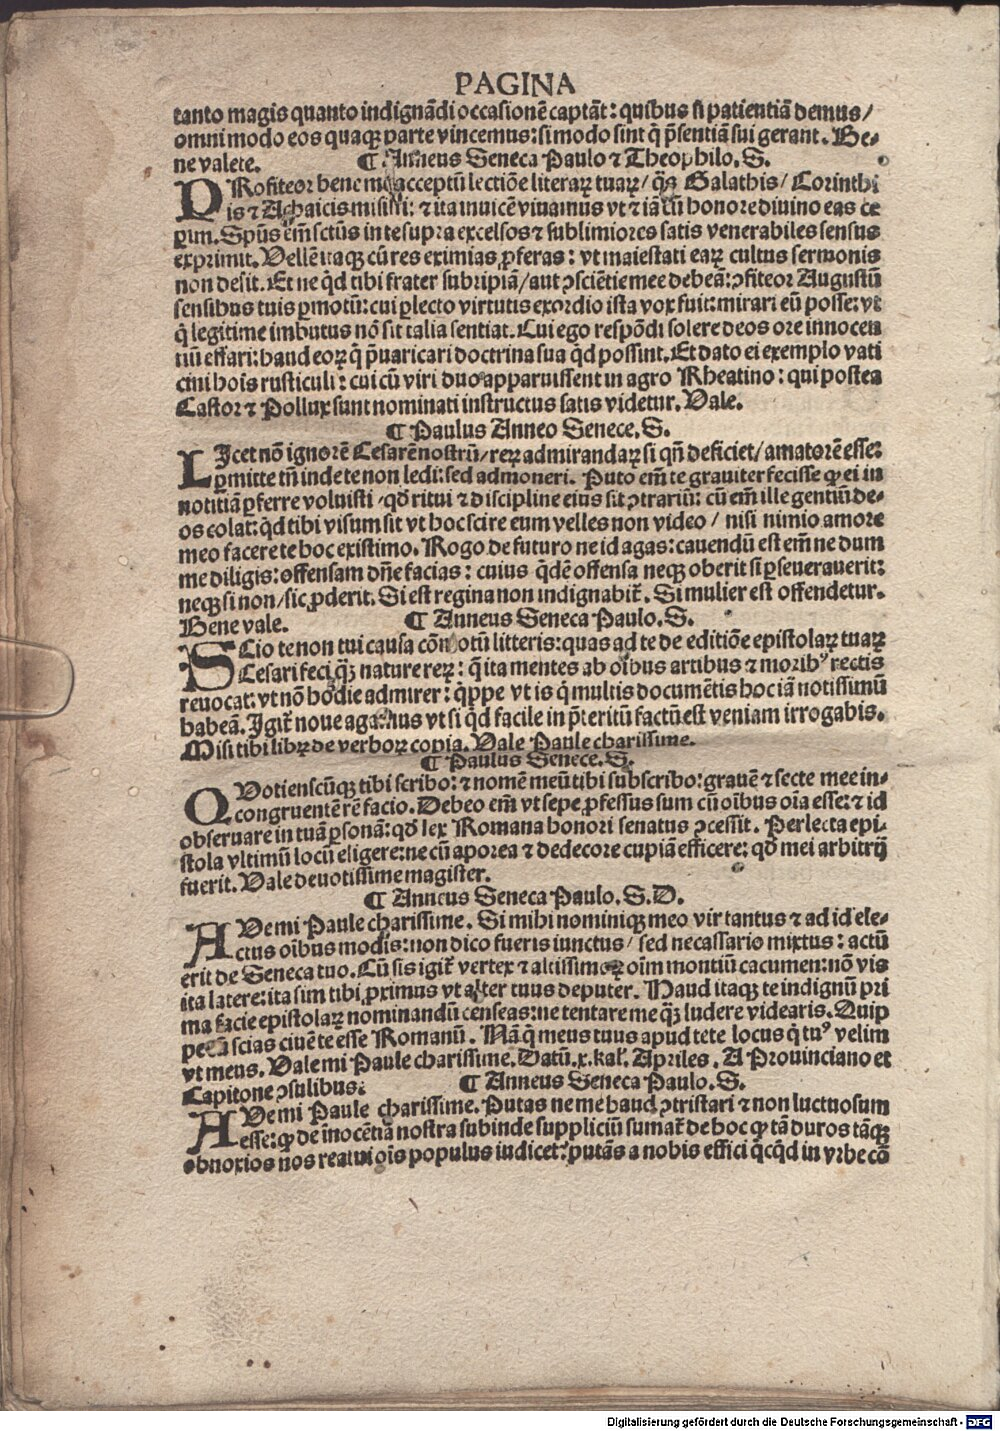 PAGINA
tanto magis quanto indignãdi occasionẽ captãt: quibus si patientiã demus/
omni modo eos quaqꝫ parte vincemus: si modo sint q̃ p̃sentiã sui gerant. Be-
ne valete. ¶ Anneus Seneca Paulo ⁊ Theophilo. S.
PRofiteor bene me acceptũ lectiõe literaꝝ tuaꝝ/ q̃s Galathis/ Corinthi
is ⁊ Achaicis misisti: ⁊ ita inuicẽ viuamus vt ⁊ iã cũ honore diuino eas ce
ꝑim. Spũs em̃ sctũs in te supra excelsos ⁊ sublimiores satis venerabiles sensus
exprimit. Vellẽ itaqꝫ cũ res eximias ꝓferas: vt maiestati eaꝝ cultus sermonis
non desit. Et ne qd̃ tibi frater subripiã/ aut ꝯsciẽtie mee debeã: ꝯfiteor Augustũ
sensibus tuis ꝑmotũ: cui ꝑlecto virtutis exordio ista vox fuit: mirari eũ posse: vt
q̃ legitime imbutus nõ sit talia sentiat. Cui ego respõdi solere deos ore innocen
tiũ effari: haud eoꝝ q̃ p̃uaricari doctrina sua qd̃ possint. Et dato ei exemplo vati
cini hoĩs rusticuli: cui cũ viri duo apparuissent in agro Rheatino: qui postea
Castor ⁊ Pollux sunt nominati instructus satis videtur. Vale.
¶ Paulus Anneo Senece. S.
LIcet nõ ignorẽ Cesarẽ nostrũ/ reꝝ admirandaꝝ si qñ deficiet/ amatorẽ esse:
ꝑmitte tñ inde te non ledi: sed admoneri. Puto em̃ te grauiter fecisse ꝙ ei in
notitiã ꝑferre voluisti/ qd̃ ritui ⁊ discipline eius sit ꝯtrariũ: cũ em̃ ille gentiũ de-
os colat: qd̃ tibi visum sit vt hoc scire eum velles non video/ nisi nimio amore
meo facere te hoc existimo. Rogo de futuro ne id agas: cauendũ est em̃ ne dum
me diligis: offensam dñe facias: cuius qd̃ẽ offensa neqꝫ oberit si ꝑseuerauerit:
neqꝫ si non/ sic ꝓderit. Si est regina non indignabit̃. Si mulier est offendetur.
Bene vale. ¶ Anneus Seneca Paulo. S.
SCio te non tui causa cõmotũ litteris: quas ad te de editiõe epistolaꝝ tuaꝝ
Cesari feci qꝫ nature reꝝ: q̃ ita mentes ab oĩbus artibus ⁊ moribꝰ rectis
reuocat: vt nõ hodie admirer: q̃ppe vt is q̃ multis documẽtis hoc iã notissimũ
habeã. Igit̃ noue agamus vt si qd̃ facile in p̃teritũ factũ est veniam irrogabis.
Misi tibi libꝝ de verboꝝ copia. Vale Paule charissime.
¶ Paulus Senece. S.
QVotienscũqꝫ tibi scribo: ⁊ nomẽ meũ tibi subscribo: grauẽ ⁊ secte mee in-
congruentẽ rẽ facio. Debeo em̃ vt sepe ꝓfessus sum cũ oĩbus oĩa esse: ⁊ id
obseruare in tuã ꝑsonã: qd̃ lex Romana honori senatus ꝯcessit. Perlecta epi-
stola vltimũ locũ eligere: ne cũ aporea ⁊ dedecore cupiã efficere: qd̃ mei arbitrij
fuerit. Vale deuotissime magister.
¶ Anneus Seneca Paulo. S. D.
AVe mi Paule charissime. Si mihi nominiqꝫ meo vir tantus ⁊ ad id ele-
ctus oĩbus modis: non dico fueris iunctus/ sed necassario mixtus: actũ
erit de Seneca tuo. Cũ sis igit̃ vertex ⁊ altissimoꝝ oĩm montiũ cacumen: nõ vis
ita latere: ita sim tibi ꝓximus vt alter tuus deputer. Haud itaqꝫ te indignũ pri
ma facie epistolaꝝ nominandũ censeas: ne tentare me qꝫ ludere videaris. Quip
pe cũ scias ciuẽ te esse Romanũ. Nã q̃ meus tuus apud te te locus q̃ tuꝰ velim
vt meus. Vale mi Paule charissime. Datũ. x. kal̃. Apriles. A Prouinciano et
Capitone ꝯsulibus. ¶ Anneus Seneca Paulo. S.
AVe mi Paule charissime. Putas ne me haud ꝯtristari ⁊ non luctuosum
esse: ꝙ de ĩnocẽtiã nostra subinde suppliciũ sumat̃ de hoc ꝙ tã duros tãqꝫ
obnoxios nos reatui oĩs populus iudicet: putãs a nobis effici qc̃qd̃ in vrbe cõ
Digitalisierung gefördert durch die Deutsche Forschungsgemeinschaft - DFG